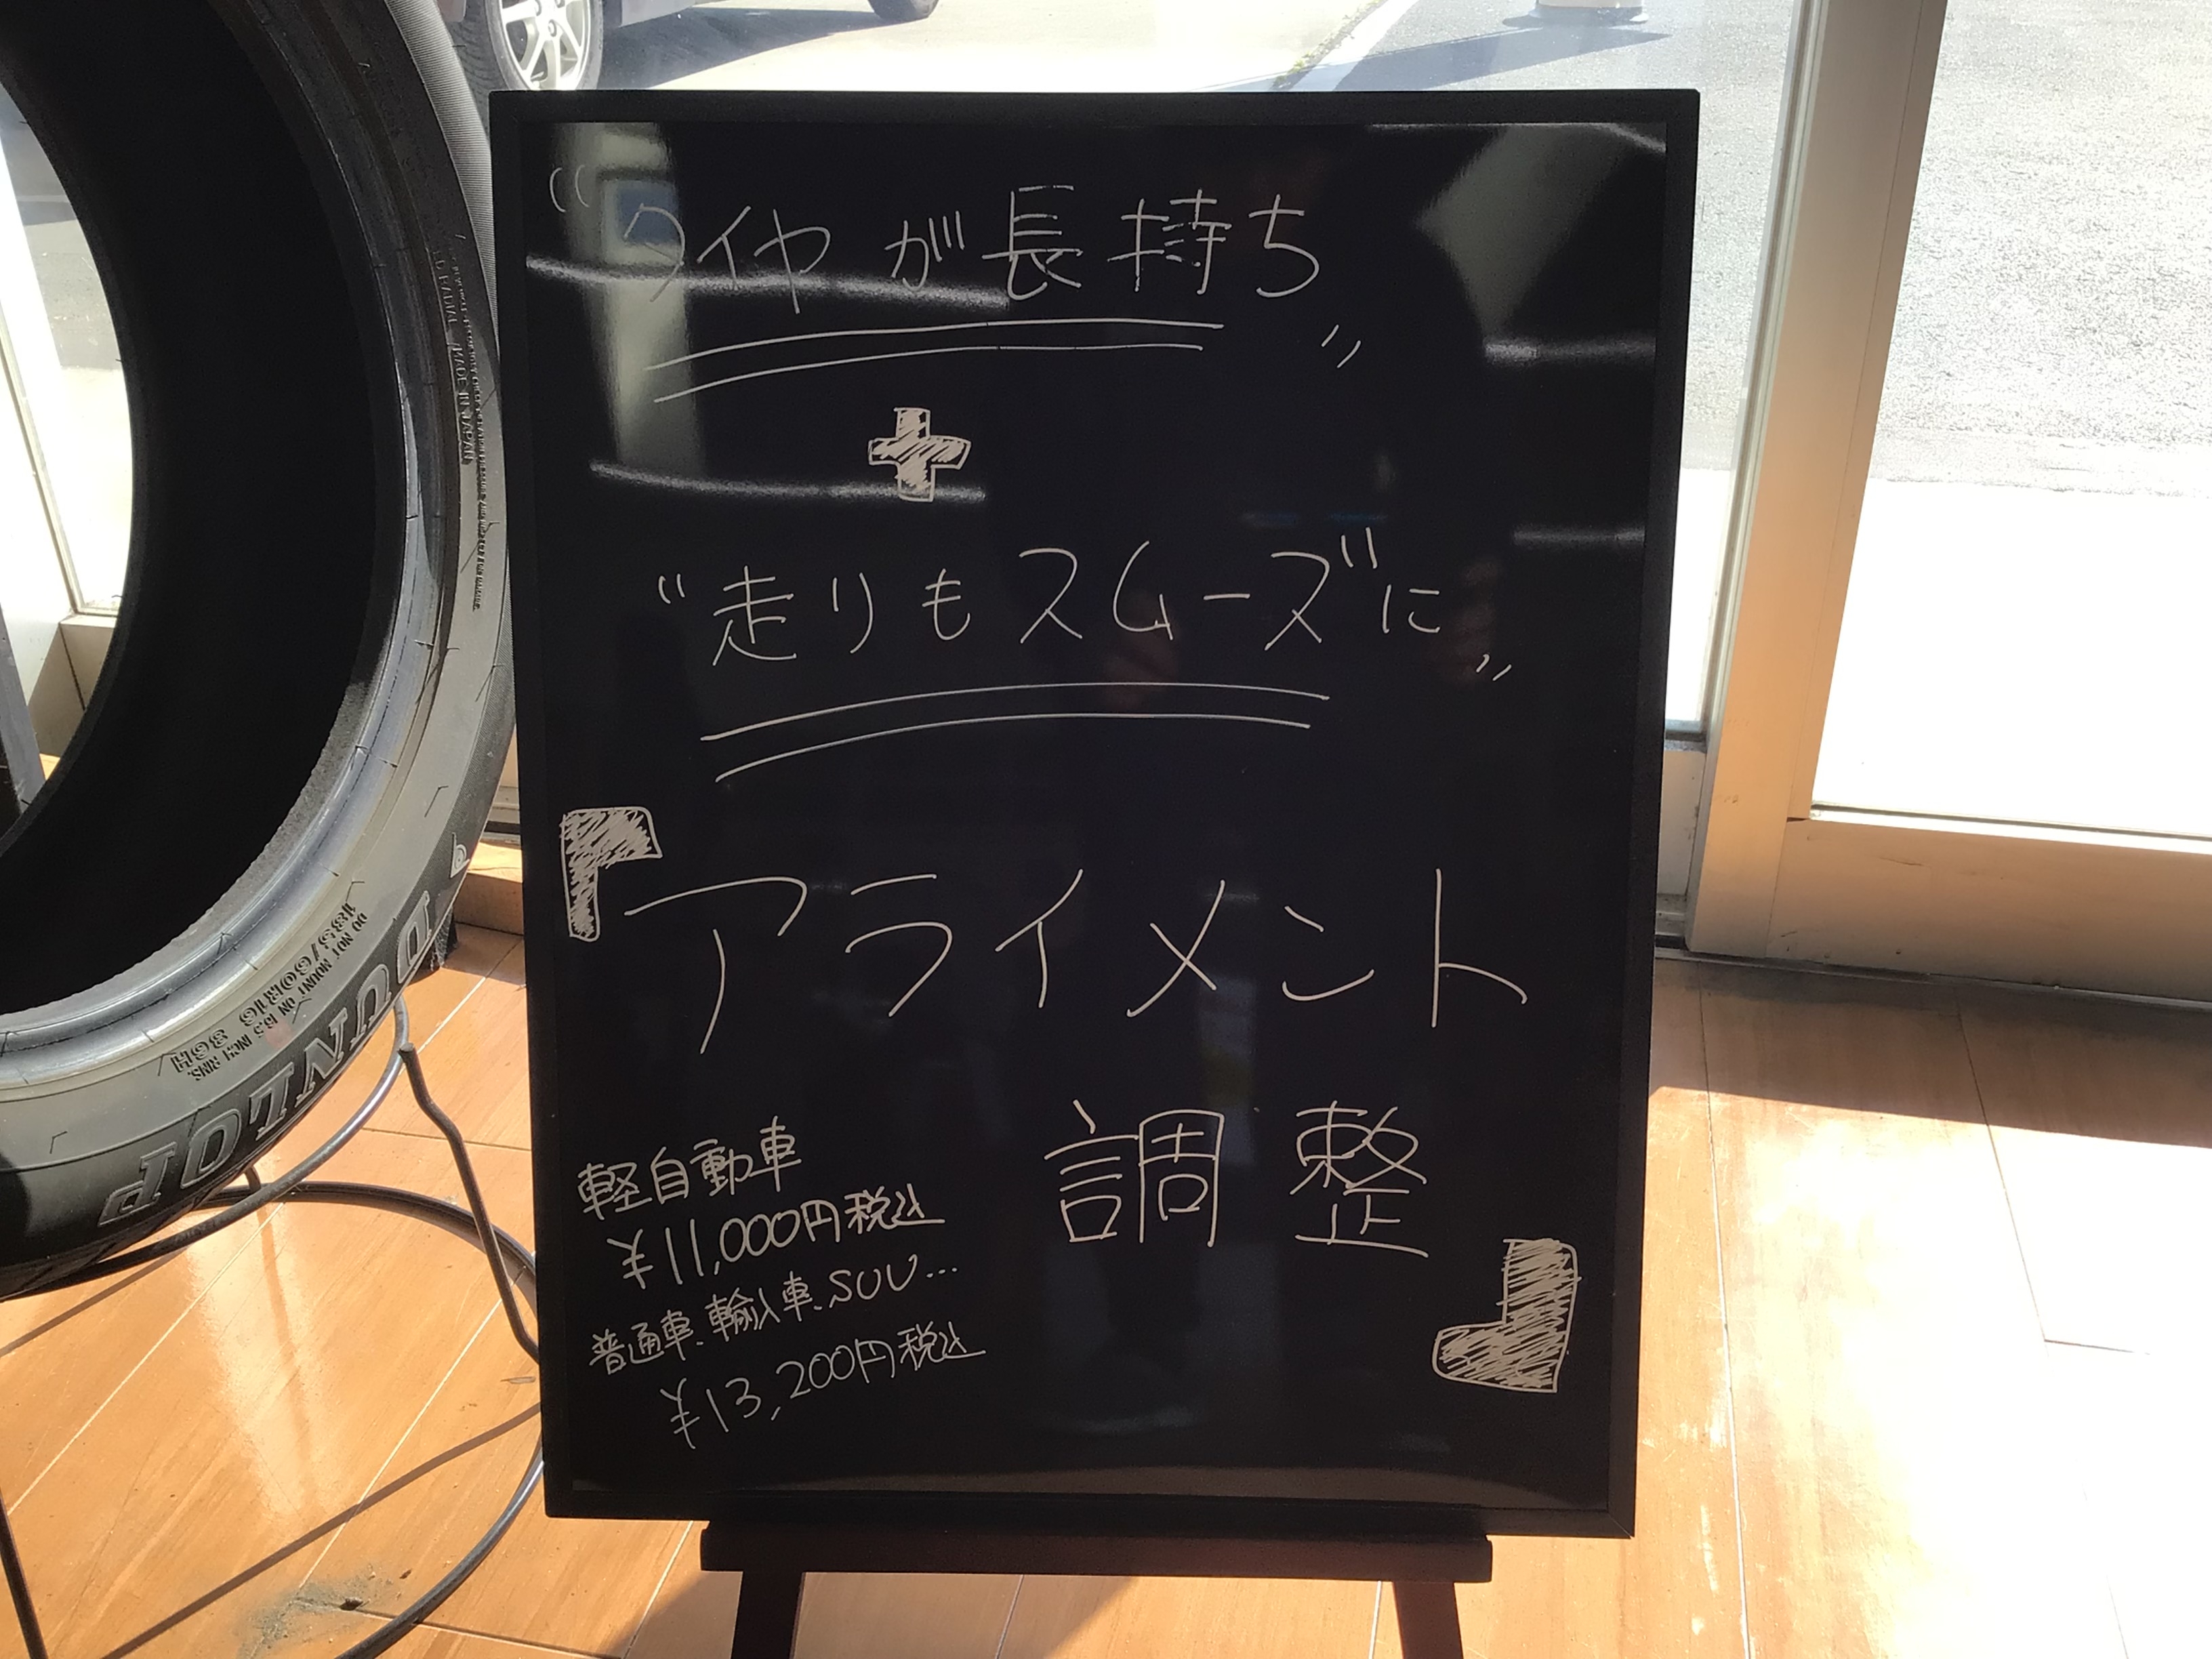 “タイヤが長持ち”
+
“走りもスムーズに”
『アライメント
調整』
軽自動車
¥11,000円税込
普通車、輸入車、SUV…
¥13,200円税込
DUNLOP
185/60R16 86H
DO NOT MOUNT ON 15.5 INCH RIMS.
RADIAL MADE IN JAPAN